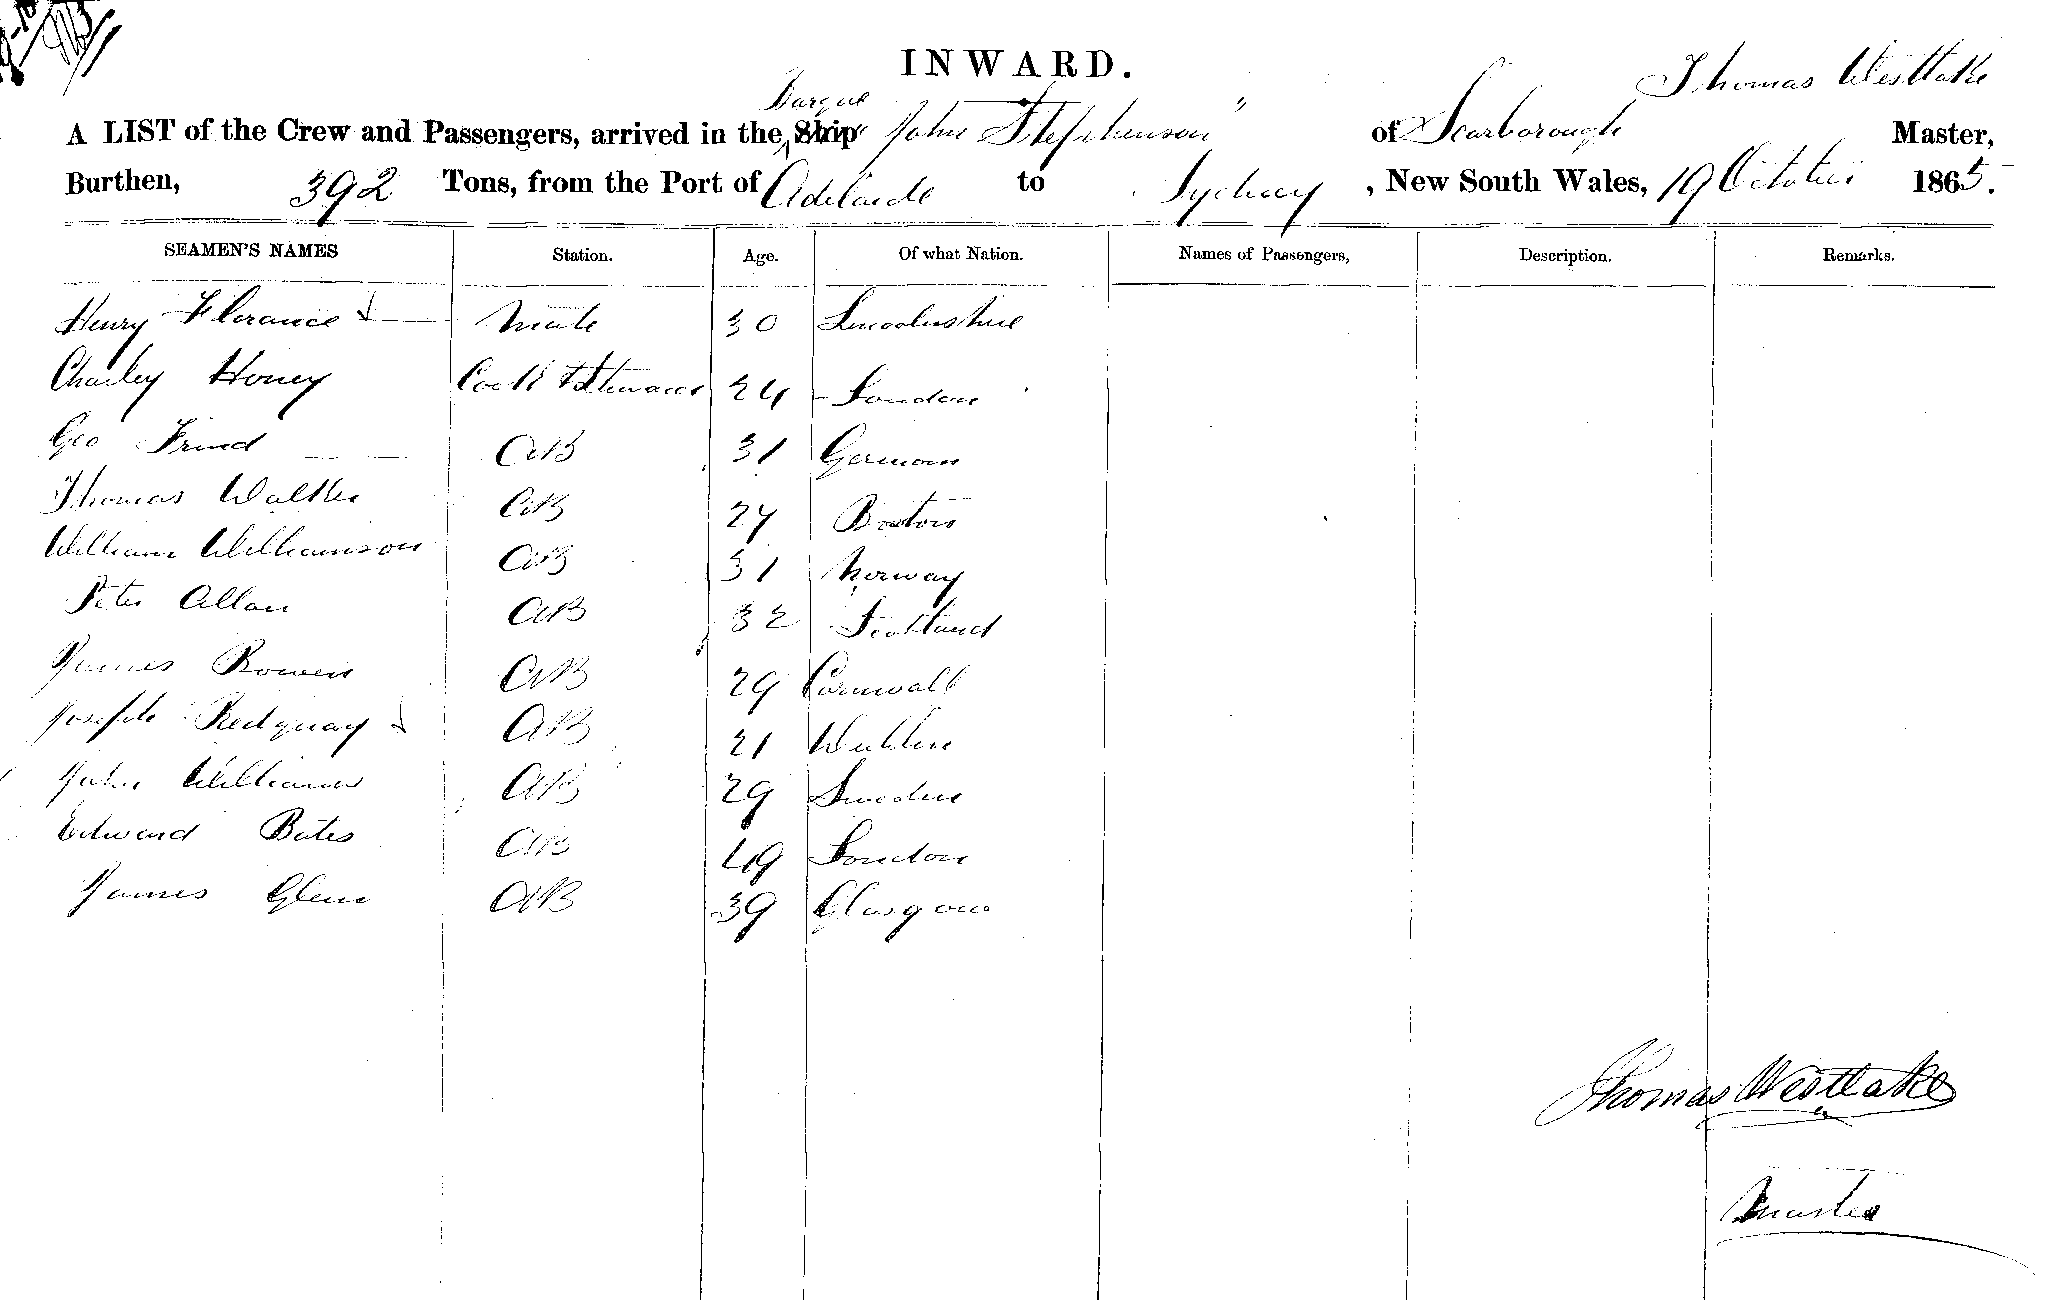 INWARD.
Thomas Westlake
Barque
A LIST of the Crew and Passengers, arrived in the Ship "John Stephenson" of Scarborough Master,
Burthen, 392 Tons, from the Port of Adelaide to Sydney, New South Wales, 19 October 1865.
SEAMEN'S NAMES Station. Age. Of what Nation. Names of Passengers, Description. Remarks.
Henry Florance Mate 30 Lincolnshire
Charley Honey Cook & Steward 24 London
Geo Frind AB 31 German
Thomas Walker AB 24 Boston
William Williamson AB 31 Norway
Peter Allan AB 32 Scotland
James Bowen AB 29 Cornwall
Joseph Redguay AB 21 Dublin
John Williams AB 29 Sweden
Edward Bates AB 49 London
James Glen AB 39 Glasgow
Thomas Westlake
Master